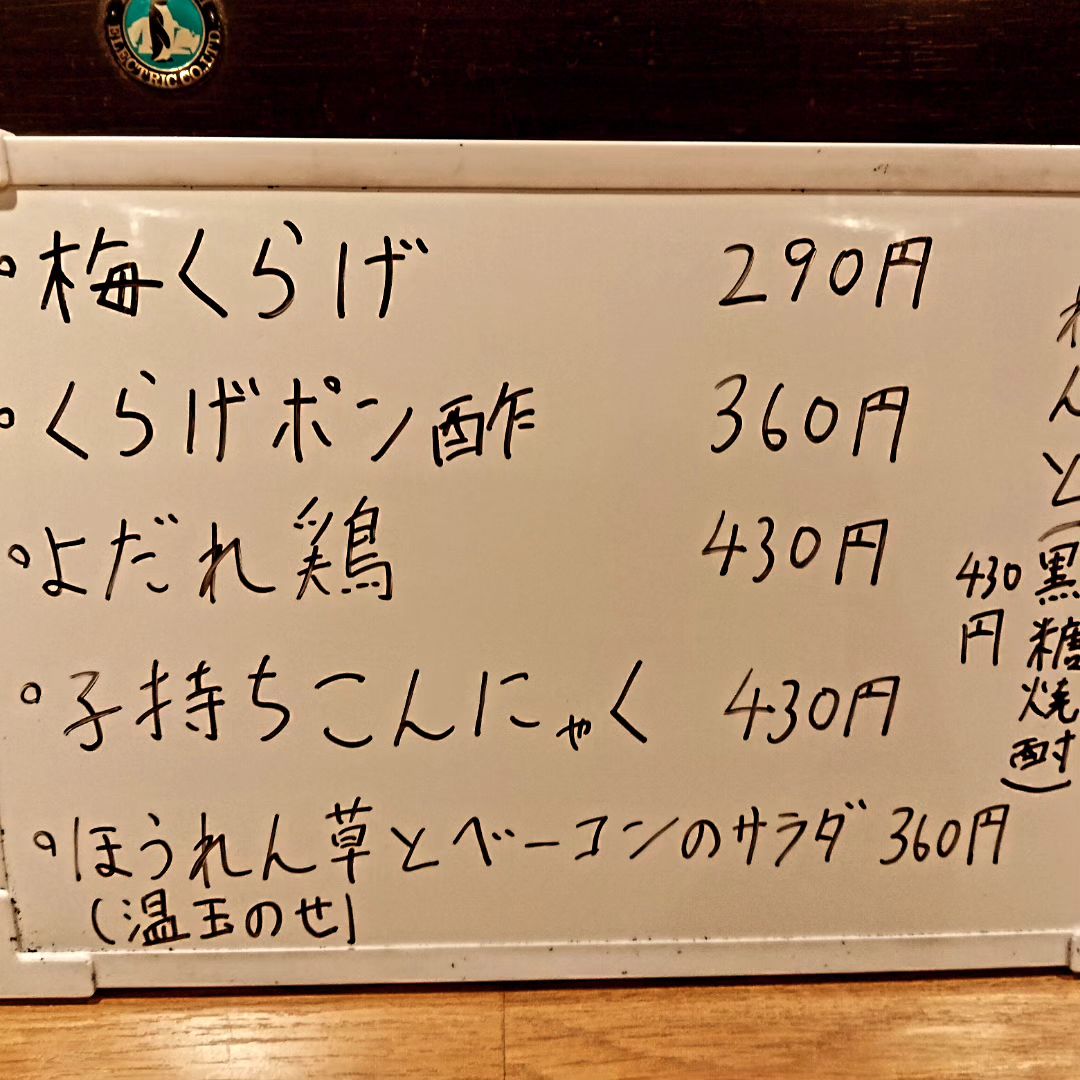 ELECTRIC CO., LTD.
梅くらげ 290円
くらげポン酢 360円
よだれ鶏 430円
子持ちこんにゃく 430円
ほうれん草とベーコンのサラダ 360円
(温玉のせ)
んと
(黒糖焼酎)
430円